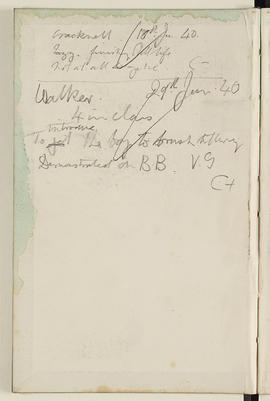 Cracknell. 18th Jun 40.
Lazy.
Not at all
C-
Walker. 29th Jun 40
4 in class
introduce
To get the boy to brush
Demonstrated on B B. V. G
C+